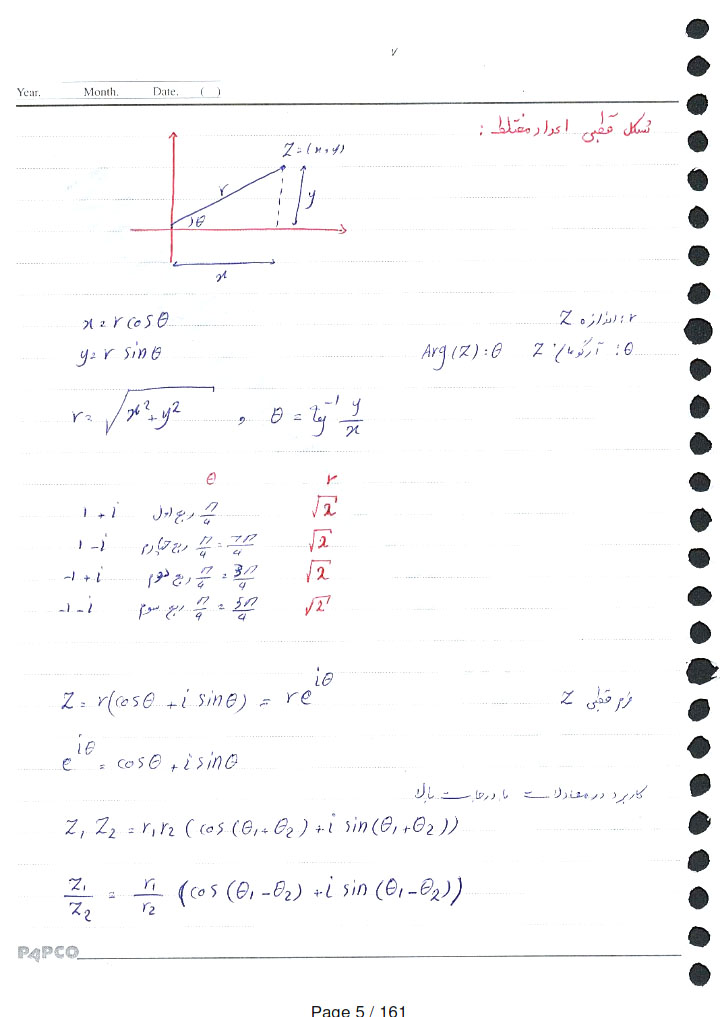 ٧
Year. Month. Date. ( )
شکل قطبی اعداد مختلط :
Z = (x, y)
r
y
θ
x
x = r cosθ
r : اندازه Z
y = r sinθ
Arg(Z) : θ
θ : آرگومان Z
r = √(x² + y²) , θ = tg⁻¹ y/x
θ r
1 + i ربع اول π/4 √2
1 - i ربع چهارم π/4 = 7π/4 √2
-1 + i ربع دوم π/4 = 3π/4 √2
-1 - i ربع سوم π/4 = 5π/4 √2
Z = r(cosθ + i sinθ) = re^{iθ}
فرم قطبی Z
e^{iθ} = cosθ + i sinθ
کاربرد در معادلات با درجات بالا
Z₁ Z₂ = r₁r₂ (cos(θ₁+θ₂) + i sin(θ₁+θ₂))
Z₁/Z₂ = r₁/r₂ (cos(θ₁-θ₂) + i sin(θ₁-θ₂))
PAPCO
Page 5 / 161